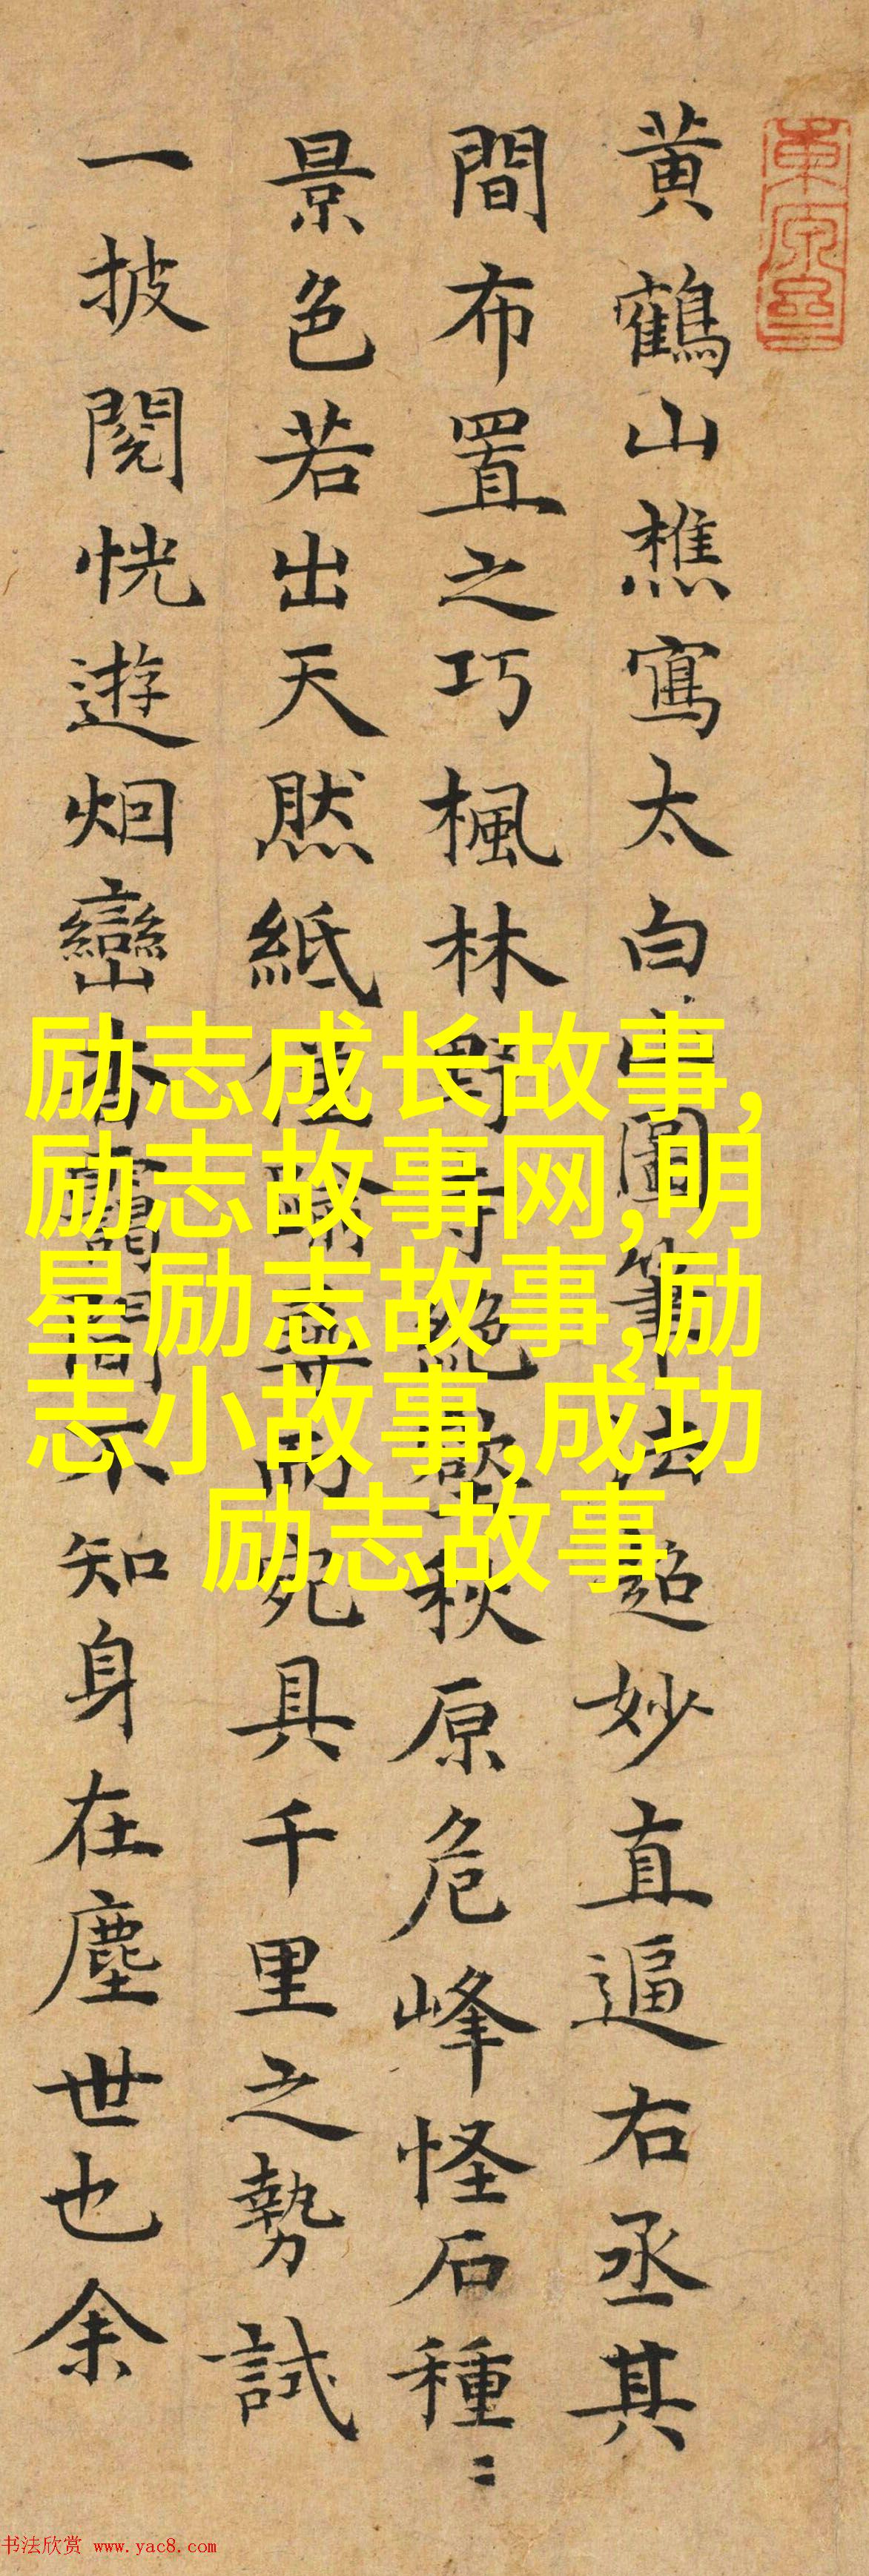 黄鶴山樵寫太白山圖筆法超妙直逼右丞其
間布置之巧楓林野寺絶欲秋原危峰怪石種〻
景色若出天然紙僅而具千里之勢試
一披閱恍遊烟巒杳靄間不知身在塵世也余
励志成长故事,
励志故事网,明
星励志故事,励
志小故事,成功
励志故事
书法欣赏 www.yac8.com